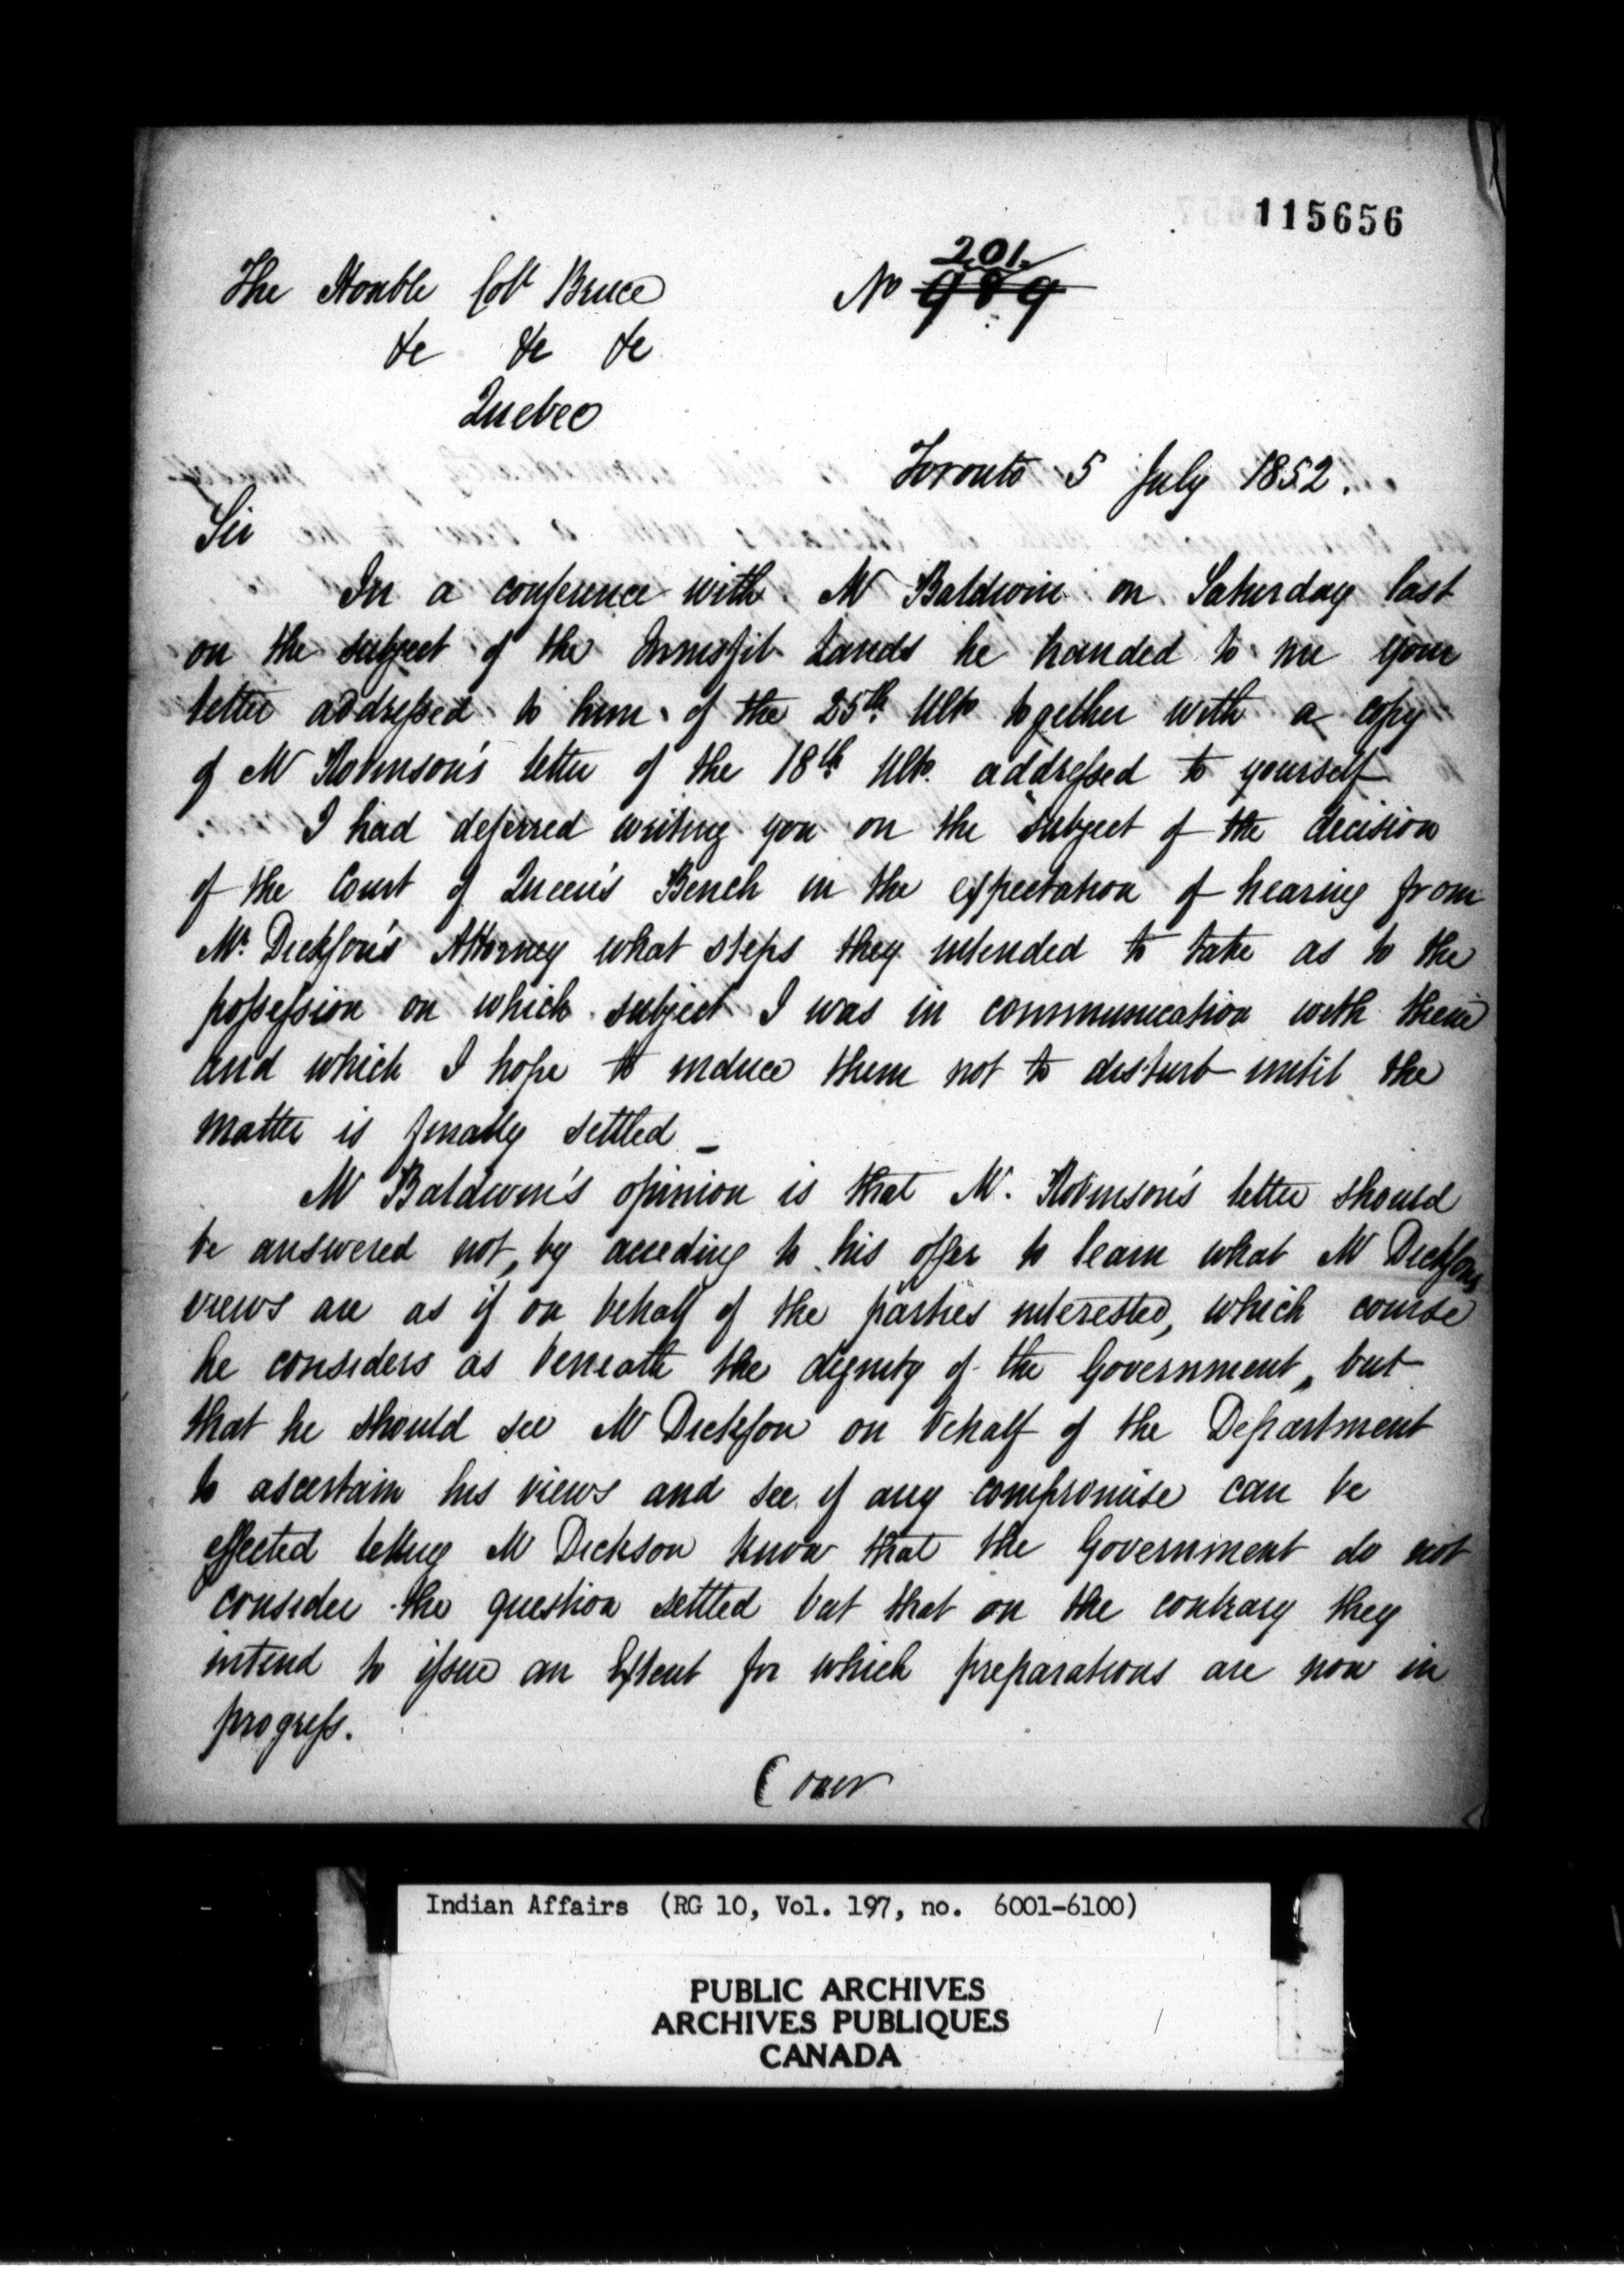 115656
The Honble Col Bruce
No 201.
989
&c &c &c
Quebec
Toronto 5 July 1852.
Sir
In a conference with Mr Baldwin on Saturday last
on the subject of the Innisfil Lands he handed to me your
letter addressed to him of the 25th Ulto together with a copy
of Mr Robinson's letter of the 18th Ulto. addressed to yourself
I had deferred writing you on the subject of the decision
of the Court of Queen's Bench in the expectation of hearing from
Mr. Dickson's Attorney what steps they intended to take as to the
possession on which subject I was in communication with them
and which I hope to induce them not to disturb until the
matter is finally settled _
Mr Baldwin's opinion is that Mr. Robinson's letter should
be answered not, by acceding to his offer to learn what Mr Dicksons
views are as if on behalf of the parties interested, which course
he considers as beneath the dignity of the Government, but
that he should see Mr Dickson on behalf of the Department
to ascertain his views and see if any compromise can be
effected letting Mr Dickson know that the Government do not
consider the question settled but that on the contrary they
intend to issue an Extent for which preparations are now in
progress.
(over
Indian Affairs (RG 10, Vol. 197, no. 6001-6100)
PUBLIC ARCHIVES
ARCHIVES PUBLIQUES
CANADA